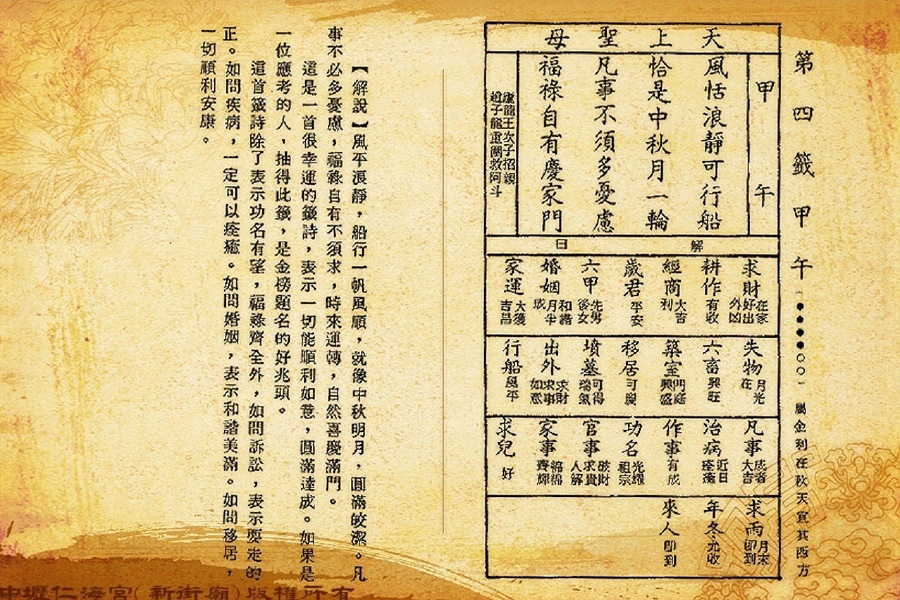 第四籤甲午(●●●●○○)屬金利在秋天宜其西方
天上聖母
甲午
風恬浪靜可行船
恰是中秋月一輪
凡事不須多憂慮
福祿自有慶家門
龍王次子招親
趙子龍重圍救阿斗
解曰
求財 在家好出外凶
耕作 有收
經商 大吉利
歲君 平安
六甲 先男後女
婚姻 和諧月半成
家運 大獲吉昌
失物 月光在
六畜 興旺
築室 門庭興盛
移居 可慶
墳墓 可得瑞氣
出外 求財求事如意
行船 風平
凡事 成者大吉
治病 近日痊癒
作事 有成
功名 光耀祖宗
官事 破財求貴人解
家事 綿綿齊輝
求兒 好
求雨 月末即到
年冬 允收
來人 即到
【解說】風平浪靜，船行一帆風順，就像中秋明月，圓滿皎潔。凡
事不必多憂慮，福祿自有不須求，時來運轉，自然喜慶滿門。
這是一首很幸運的籤詩，表示一切能順利如意，圓滿達成。如果是
一位應考的人，抽得此籤，是金榜題名的好兆頭。
這首籤詩除了表示功名有望，福祿齊全外，如問訴訟，表示要走的
正。如問疾病，一定可以痊癒。如問婚姻，表示和諧美滿。如問移居，
一切順利安康。
中壢仁海宮(新街廟)版權所有